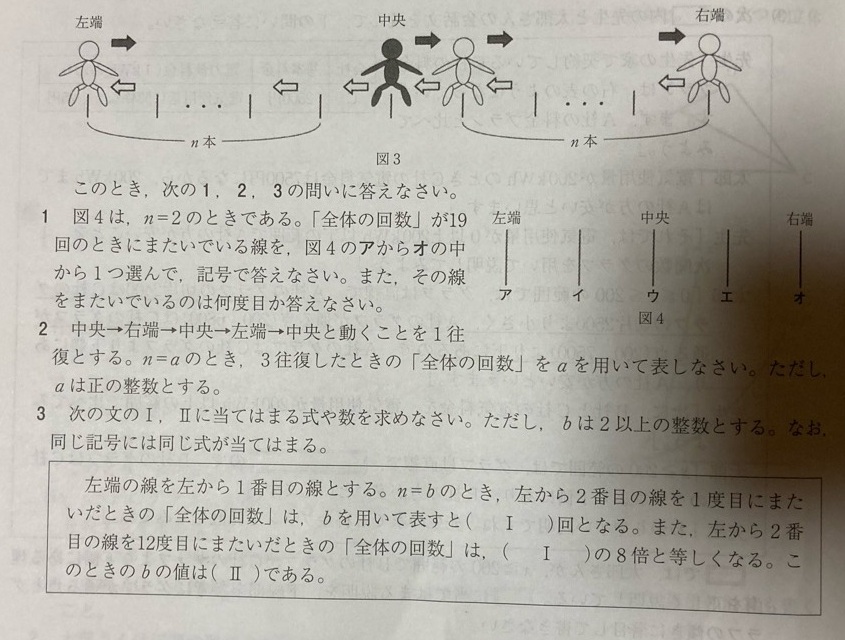 左端
中央
右端
n本
n本
図3
このとき，次の1，2，3の問いに答えなさい。
1 図4は，n＝2のときである。「全体の回数」が19
回のときにまたいでいる線を，図4のアからオの中
から1つ選んで，記号で答えなさい。また，その線
をまたいでいるのは何度目か答えなさい。
左端 中央 右端
ア イ ウ エ オ
図4
2 中央→右端→中央→左端→中央と動くことを1往
復とする。n＝aのとき，3往復したときの「全体の回数」をaを用いて表しなさい。ただし，
aは正の整数とする。
3 次の文のⅠ，Ⅱに当てはまる式や数を求めなさい。ただし，bは2以上の整数とする。なお，
同じ記号には同じ式が当てはまる。
左端の線を左から1番目の線とする。n＝bのとき，左から2番目の線を1度目にまた
いだときの「全体の回数」は，bを用いて表すと( Ⅰ )回となる。また，左から2番
目の線を12度目にまたいだときの「全体の回数」は，( Ⅰ )の8倍と等しくなる。こ
のときのbの値は( Ⅱ )である。